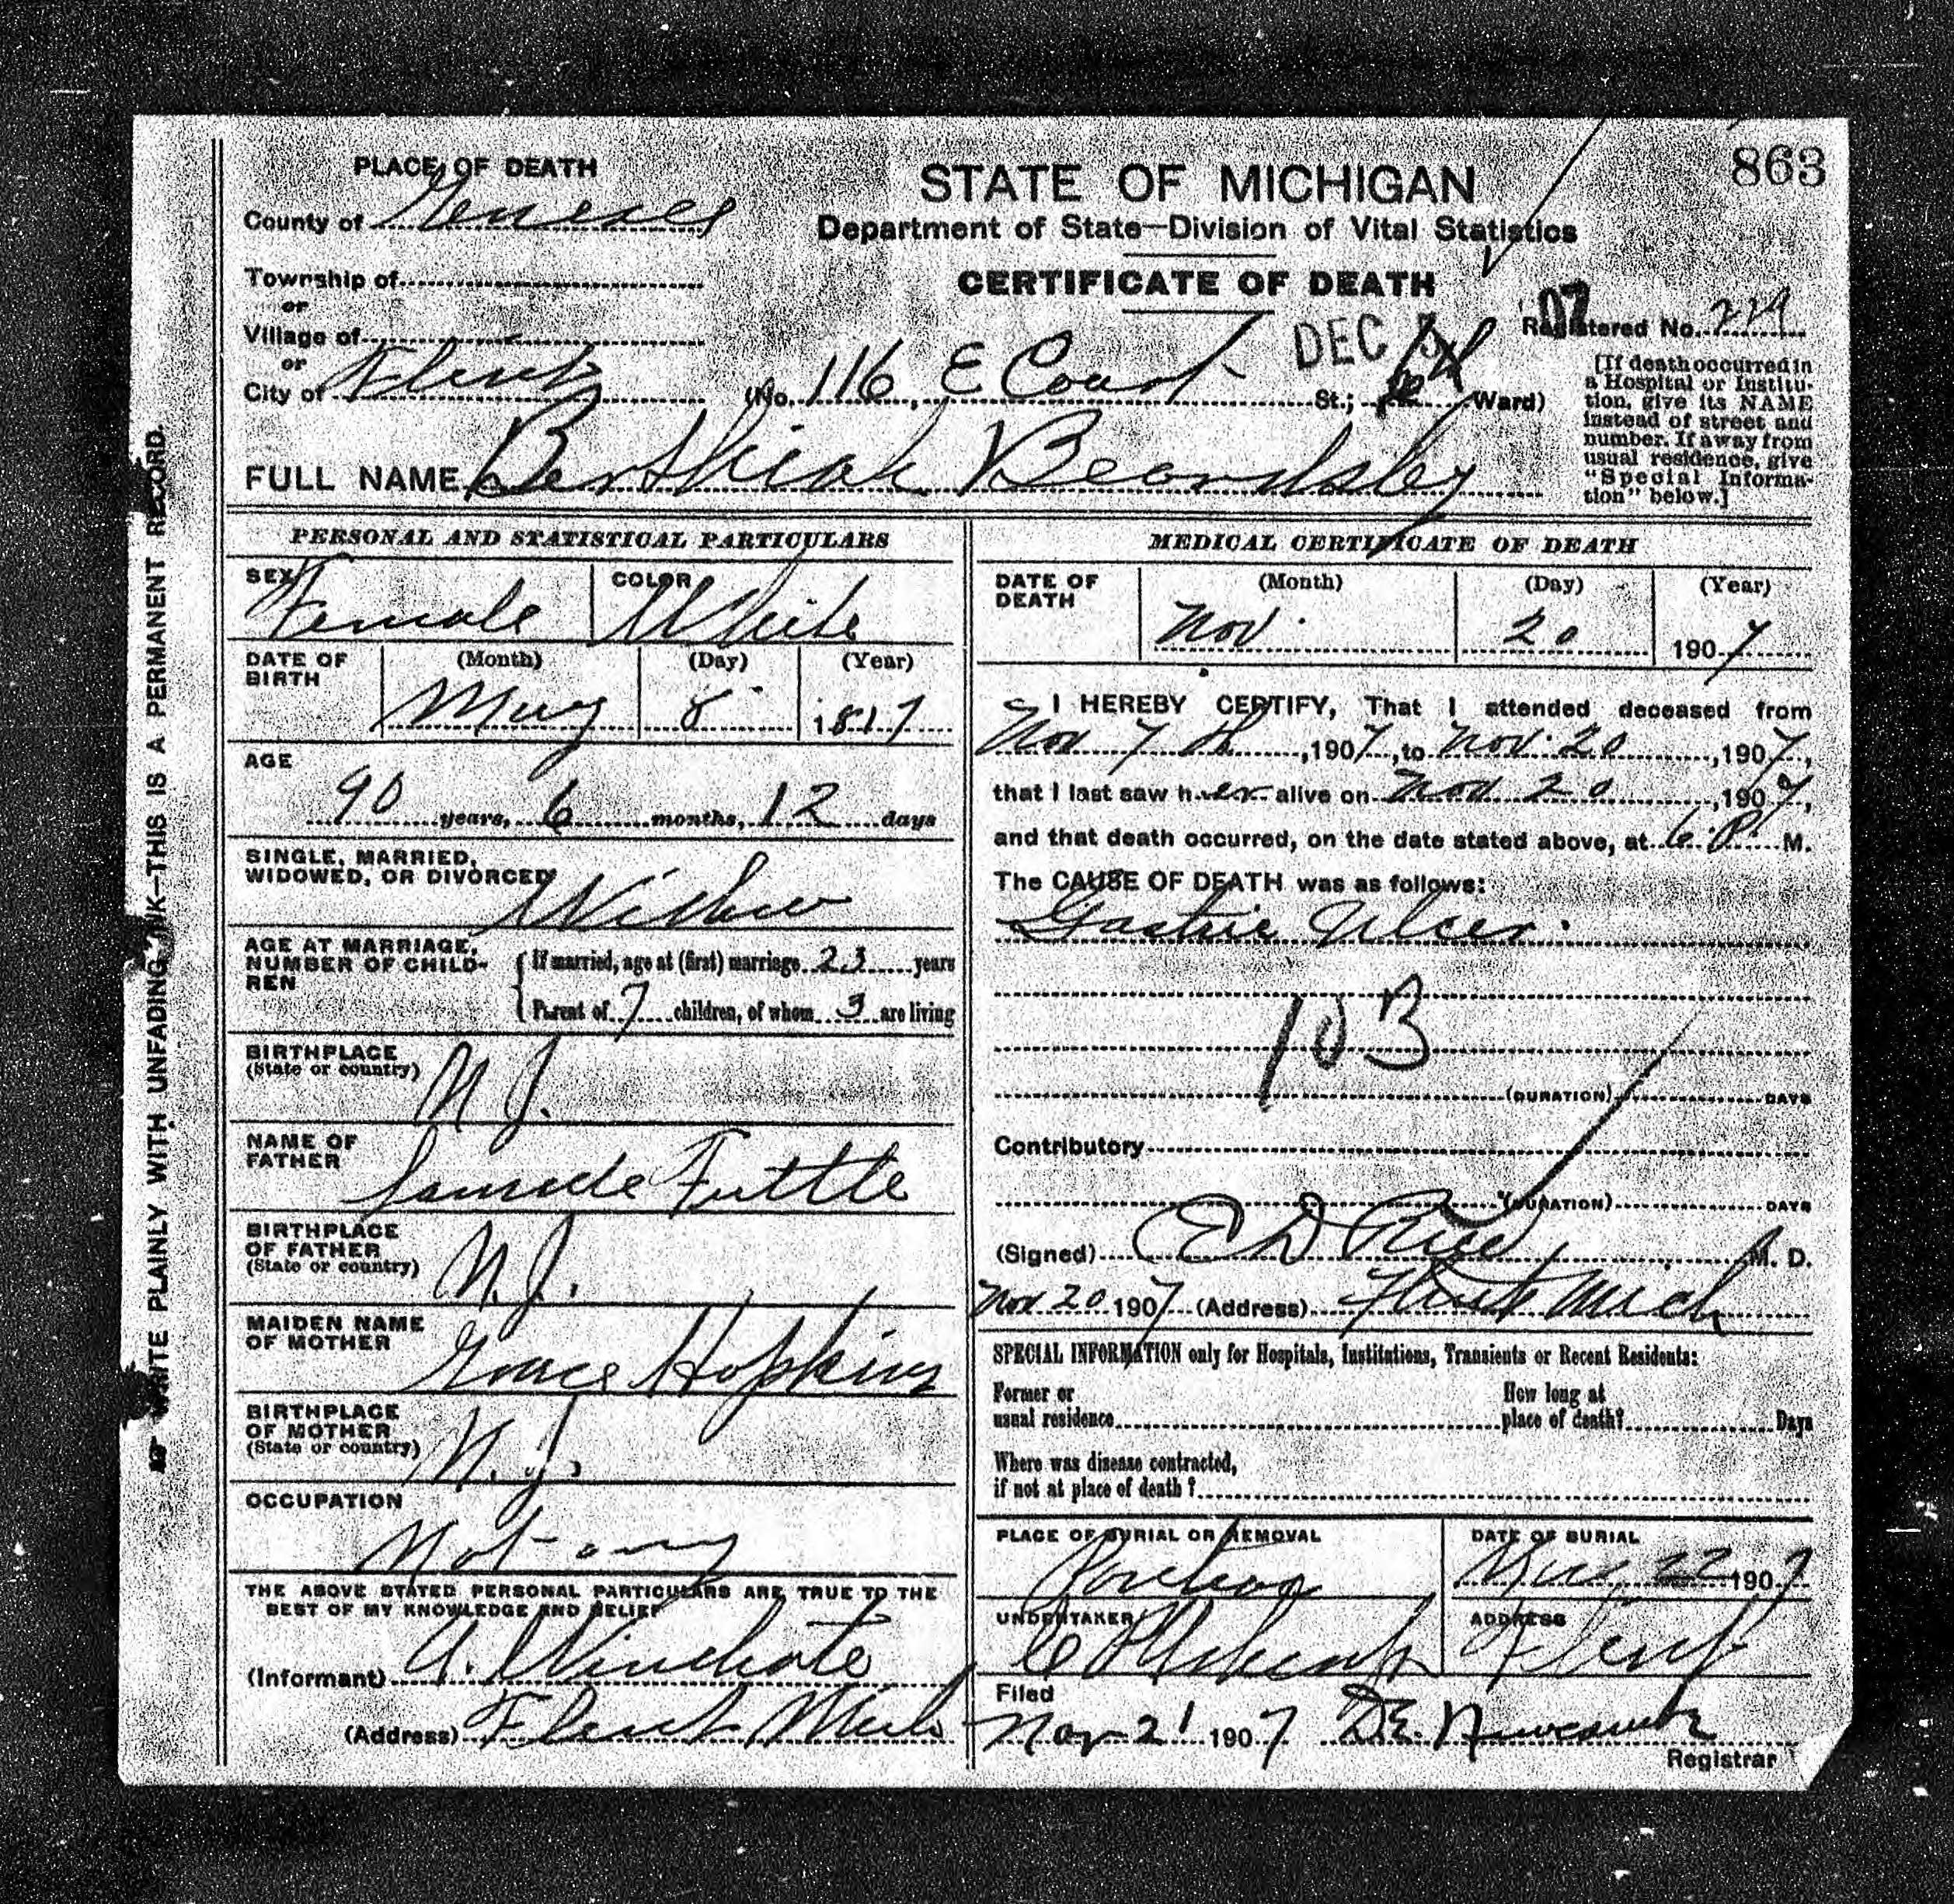 863
PLACE OF DEATH
County of Genesee
Township of
or
Village of
or
City of Flint
STATE OF MICHIGAN
Department of State—Division of Vital Statistics
CERTIFICATE OF DEATH
DEC 07
Registered No.
(No. 116, E Court St.; Ward)
[If death occurred in
a Hospital or Institu-
tion, give its NAME
instead of street and
number. If away from
usual residence, give
"Special Informa-
tion" below.]
FULL NAME Berthiah Beardsley
WRITE PLAINLY WITH UNFADING INK—THIS IS A PERMANENT RECORD.
PERSONAL AND STATISTICAL PARTICULARS
SEX Female
COLOR White
DATE OF BIRTH (Month) (Day) (Year)
May 8 1817
AGE
90 years, 6 months, 12 days
SINGLE, MARRIED,
WIDOWED, OR DIVORCED Widow
AGE AT MARRIAGE,
NUMBER OF CHILD-
REN
If married, age at (first) marriage 23 years
Parent of 7 children, of whom 3 are living
BIRTHPLACE
(State or country) N J.
NAME OF
FATHER Tuttle
BIRTHPLACE
OF FATHER
(State or country) N. J.
MAIDEN NAME
OF MOTHER Grace Hopkins
BIRTHPLACE
OF MOTHER
(State or country) N. J.
OCCUPATION
Not any
THE ABOVE STATED PERSONAL PARTICULARS ARE TRUE TO THE
BEST OF MY KNOWLEDGE AND BELIEF
(Informant) A.
(Address) Flint Mich
MEDICAL CERTIFICATE OF DEATH
DATE OF DEATH (Month) (Day) (Year)
Nov. 20 1907
I HEREBY CERTIFY, That I attended deceased from
Nov 7 th, 1907, to Nov. 20, 1907,
that I last saw her alive on Nov 20, 1907,
and that death occurred, on the date stated above, at 6. P. M.
The CAUSE OF DEATH was as follows:
Gastric Ulcer.
103
(DURATION) DAYS
Contributory
(DURATION) DAYS
(Signed) E D Rice M. D.
Nov 20 1907 (Address) Flint Mich
SPECIAL INFORMATION only for Hospitals, Institutions, Transients or Recent Residents:
Former or
usual residence
How long at
place of death? Days
Where was disease contracted,
if not at place of death?
PLACE OF BURIAL OR REMOVAL
Pontiac
DATE OF BURIAL
Nov 22 1907
UNDERTAKER
ADDRESS
Flint
Filed
Nov 21 1907 D.E. Newcombe
Registrar